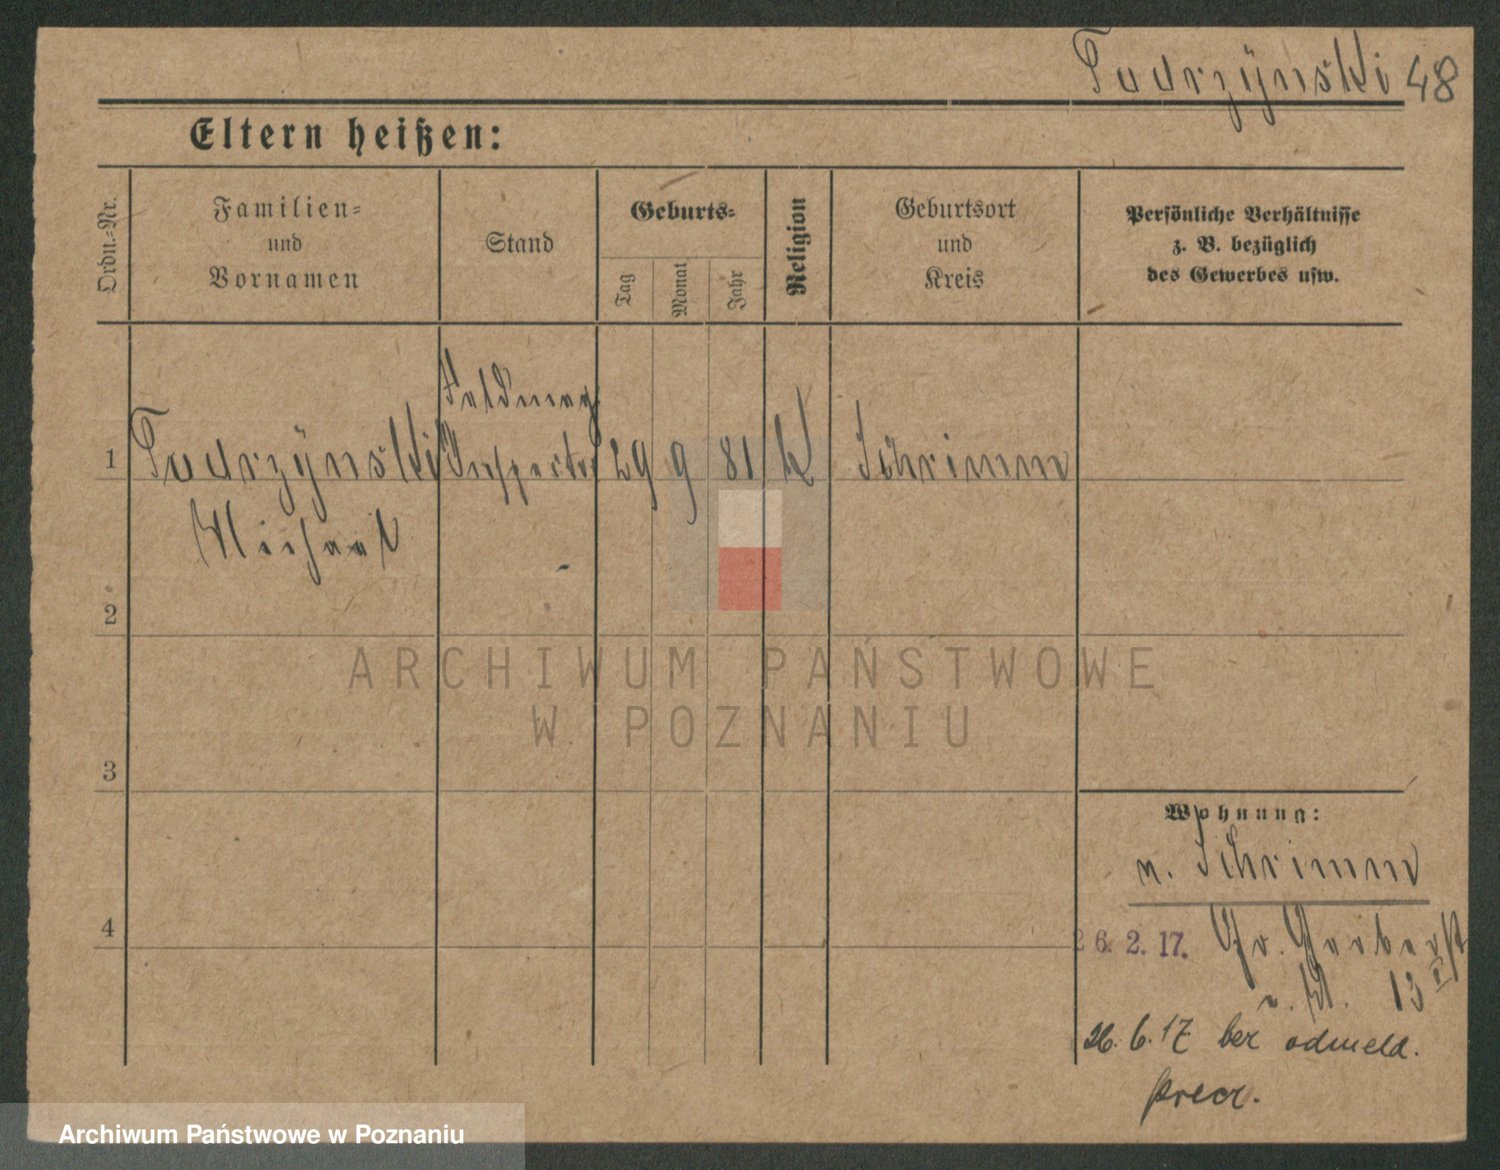 Tudrzÿnski 48
Eltern heißen:
Ordn.-Nr.
Familien-
und
Vornamen
Stand
Geburts-
Tag
Monat
Jahr
Religion
Geburtsort
und
Kreis
Persönliche Verhältnisse
z. B. bezüglich
des Gewerbes usw.
1 Tudrzÿnski Inspektor 29 9 81 K Schrimm
Michael
2
3
4
Wohnung:
n. Schrimm
26. 2. 17. Gr. Gerberst
13
26. 6. 17 bez odmeld.
ARCHIWUM PAŃSTWOWE
W POZNANIU
Archiwum Państwowe w Poznaniu